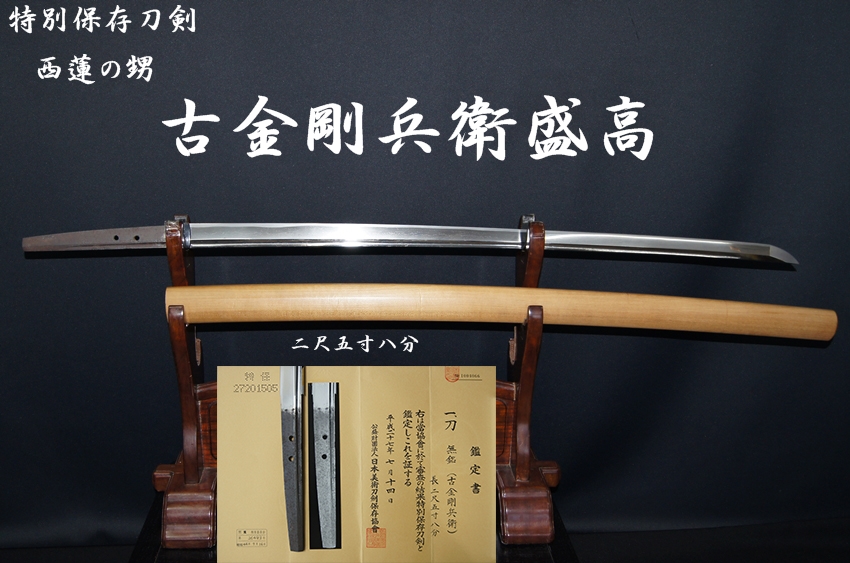 特別保存刀剣
西蓮の甥
古金剛兵衛盛高
二尺五寸八分
特保
27201505
鑑定書
一、刀 無銘(古金剛兵衛)
長 二尺五寸八分
右は當協會に於て審査の結果特別保存刀剣と
鑑定しこれを証する
平成二十七年 七月 十四日
公益財団法人 日本美術刀剣保存協會